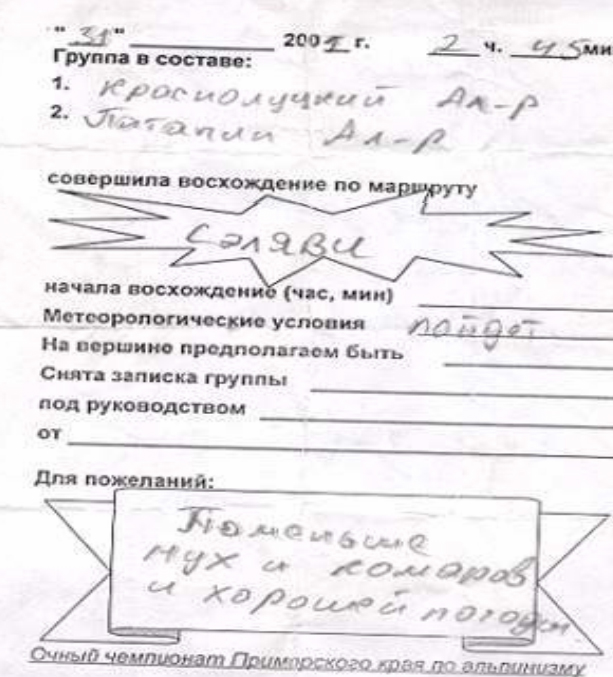 "31" 2001 г. 2 ч. 45 ми
Группа в составе:
1. Краснолуцкий Ал-р
2. Патапин Ал-р
совершила восхождение по маршруту
Сэляви
начала восхождение (час, мин)
Метеорологические условия пойдет
На вершине предполагаем быть
Снята записка группы
под руководством
от
Для пожеланий:
Поменьше
мух и комаров
и хорошей погоды.
Очный чемпионат Приморского края по альпинизму